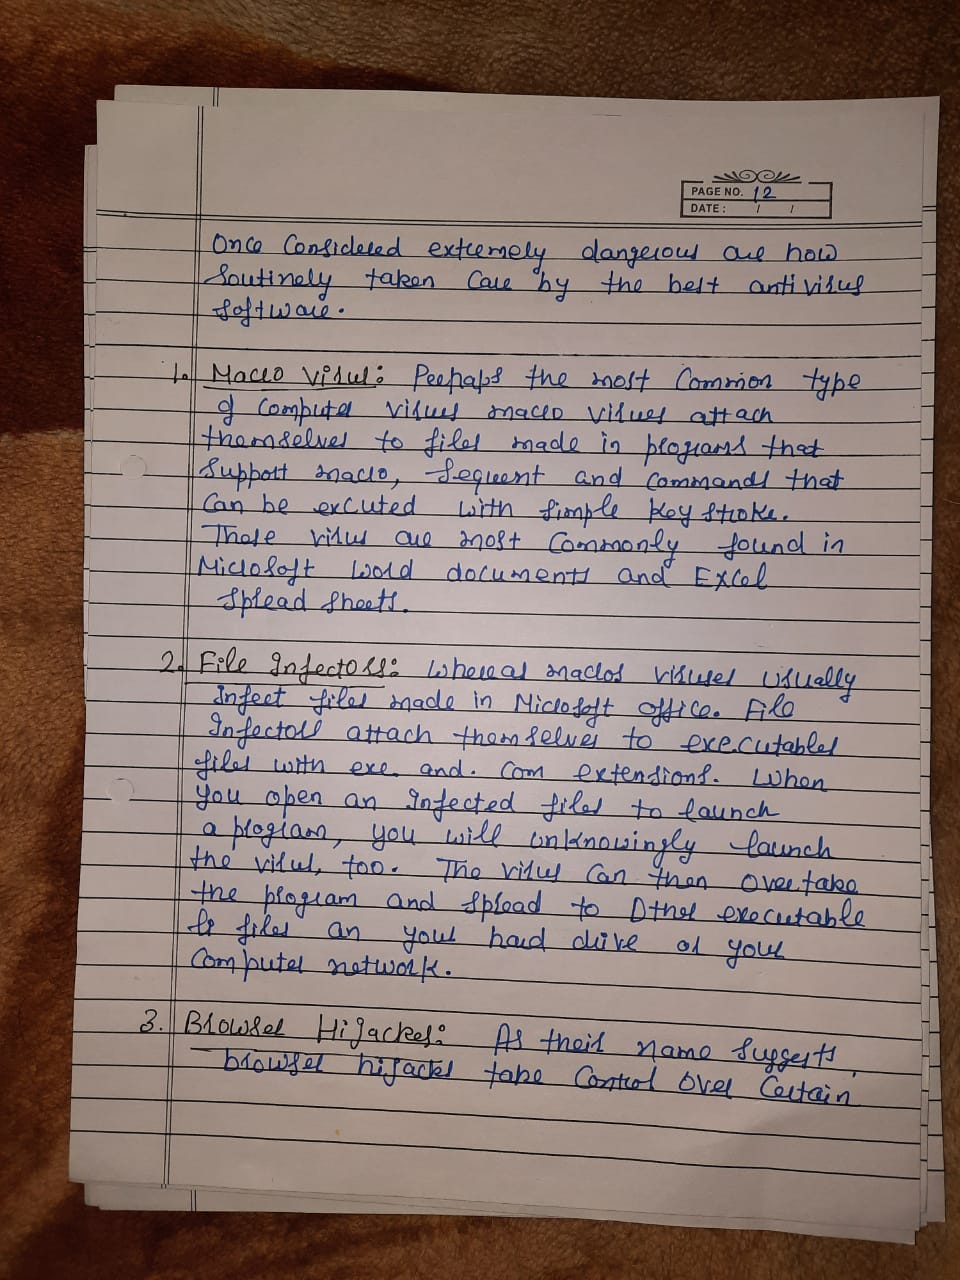 PAGE NO. 12
DATE: / /
Once Considered extremely dangerous are now
routinely taken Care by the best antivirus
software.
1. Macro Virus: Peehaps the most Common type
of Computer viruses macro viruses attach
themselves to files made in programs that
Support macro, Sequent and commands that
Can be excuted with simple key stroke.
These virus are most Commonly found in
Microsoft Word documents and Excel
Spread sheets.
2. File Infectors: whereas macros viruses usually
Infect files made in Microsoft office. File
Infectors attach themselves to executables
files with exe. and. Com extensions. When
you open an Infected files to launch
a program, you will unknowingly launch
the virus, too. The virus Can then Overtake
the program and spread to Other executable
files on your hard drive or your
Computer network.
3. Browser Hijacker: As their name Suggests,
browser hijacks take Control Over Certain